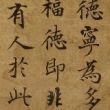 德寧為多
福德即非
有人於此